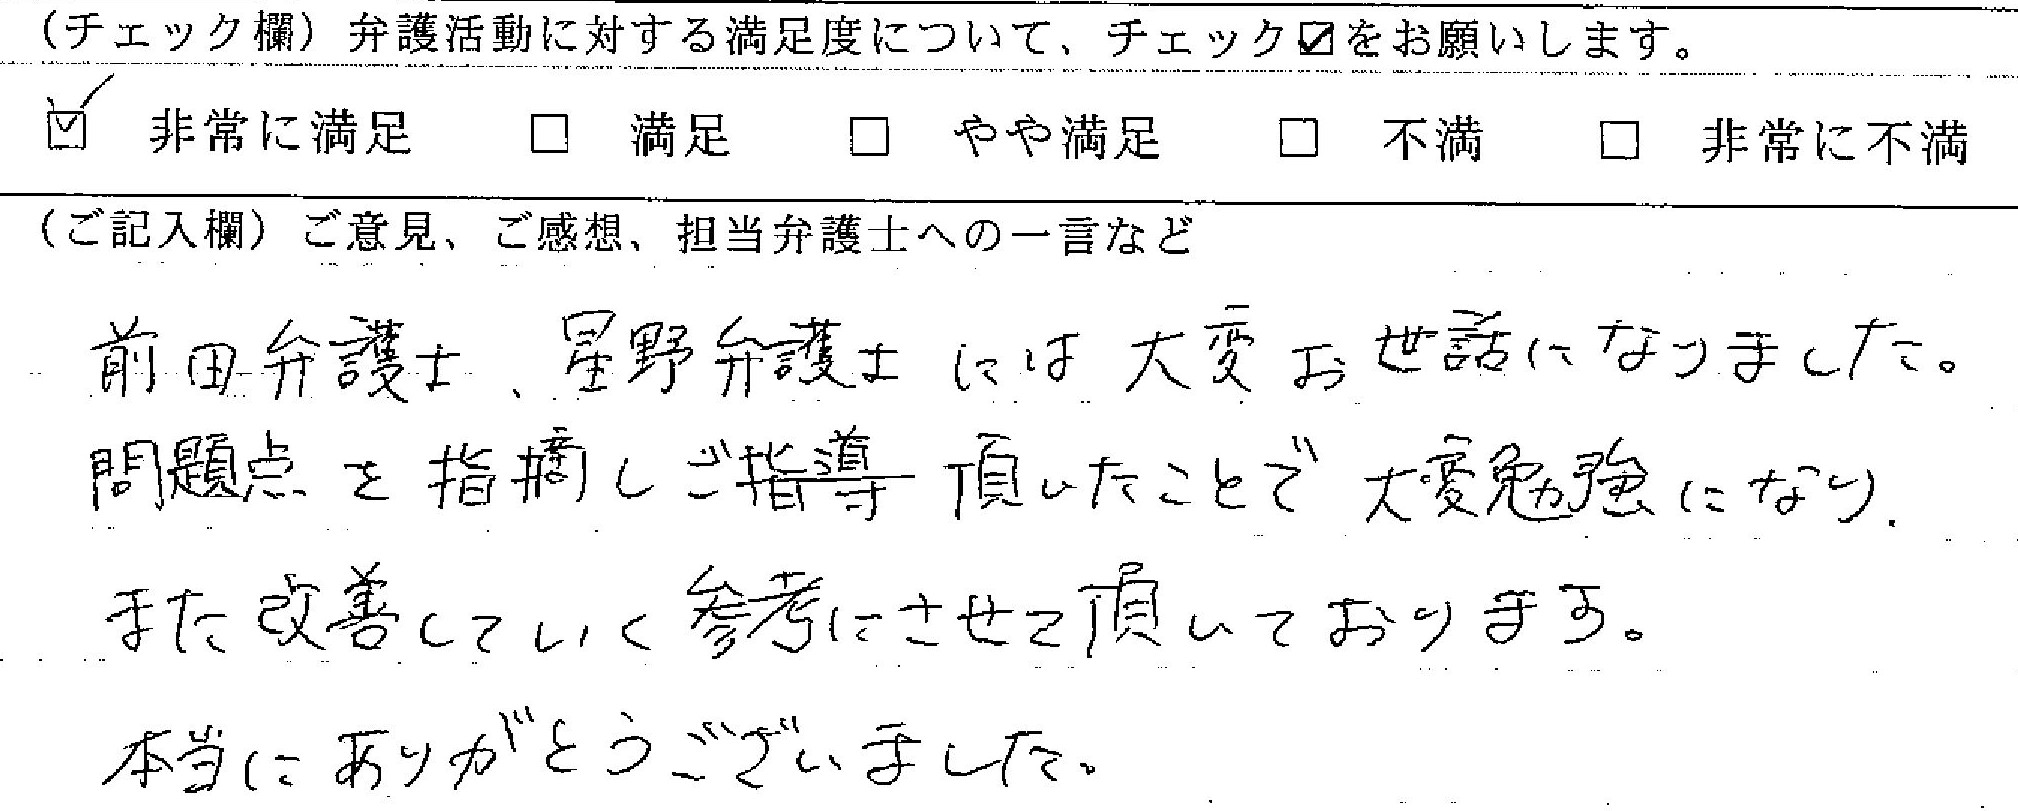 （チェック欄）弁護活動に対する満足度について、チェック☑をお願いします。
☑ 非常に満足 □ 満足 □ やや満足 □ 不満 □ 非常に不満
（ご記入欄）ご意見、ご感想、担当弁護士への一言など
前田弁護士、星野弁護士には大変お世話になりました。
問題点を指摘しご指導頂いたことで大変勉強になり、
また改善していく参考にさせて頂いております。
本当にありがとうございました。